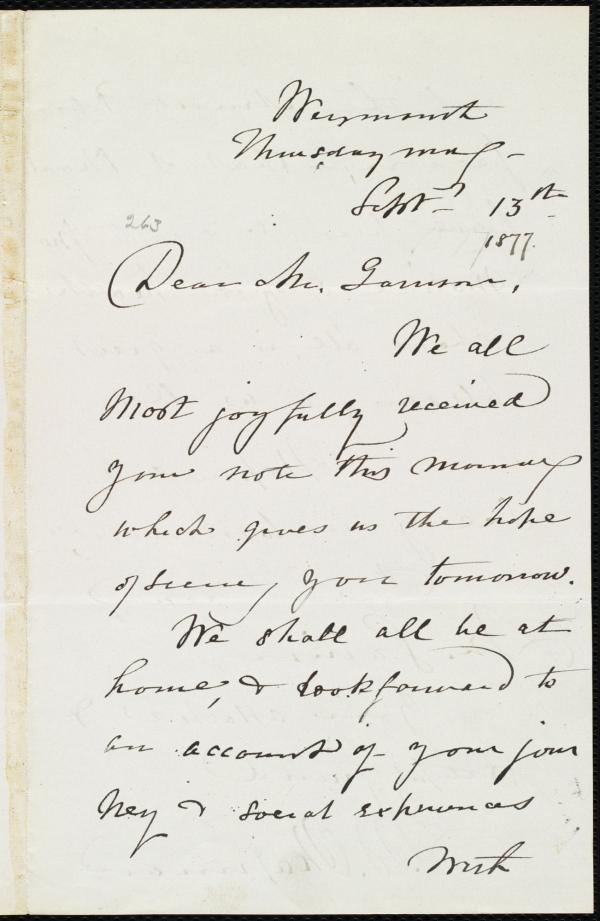 Weymouth
Thursday mng -
Sept - 13th
1877.
263
Dear Mr. Garrison,
We all
most joyfully received
your note this morning
which gives us the hope
of seeing you tomorrow.
We shall all be at
home, & look forward to
an account of your jour
ney & social experiences
With